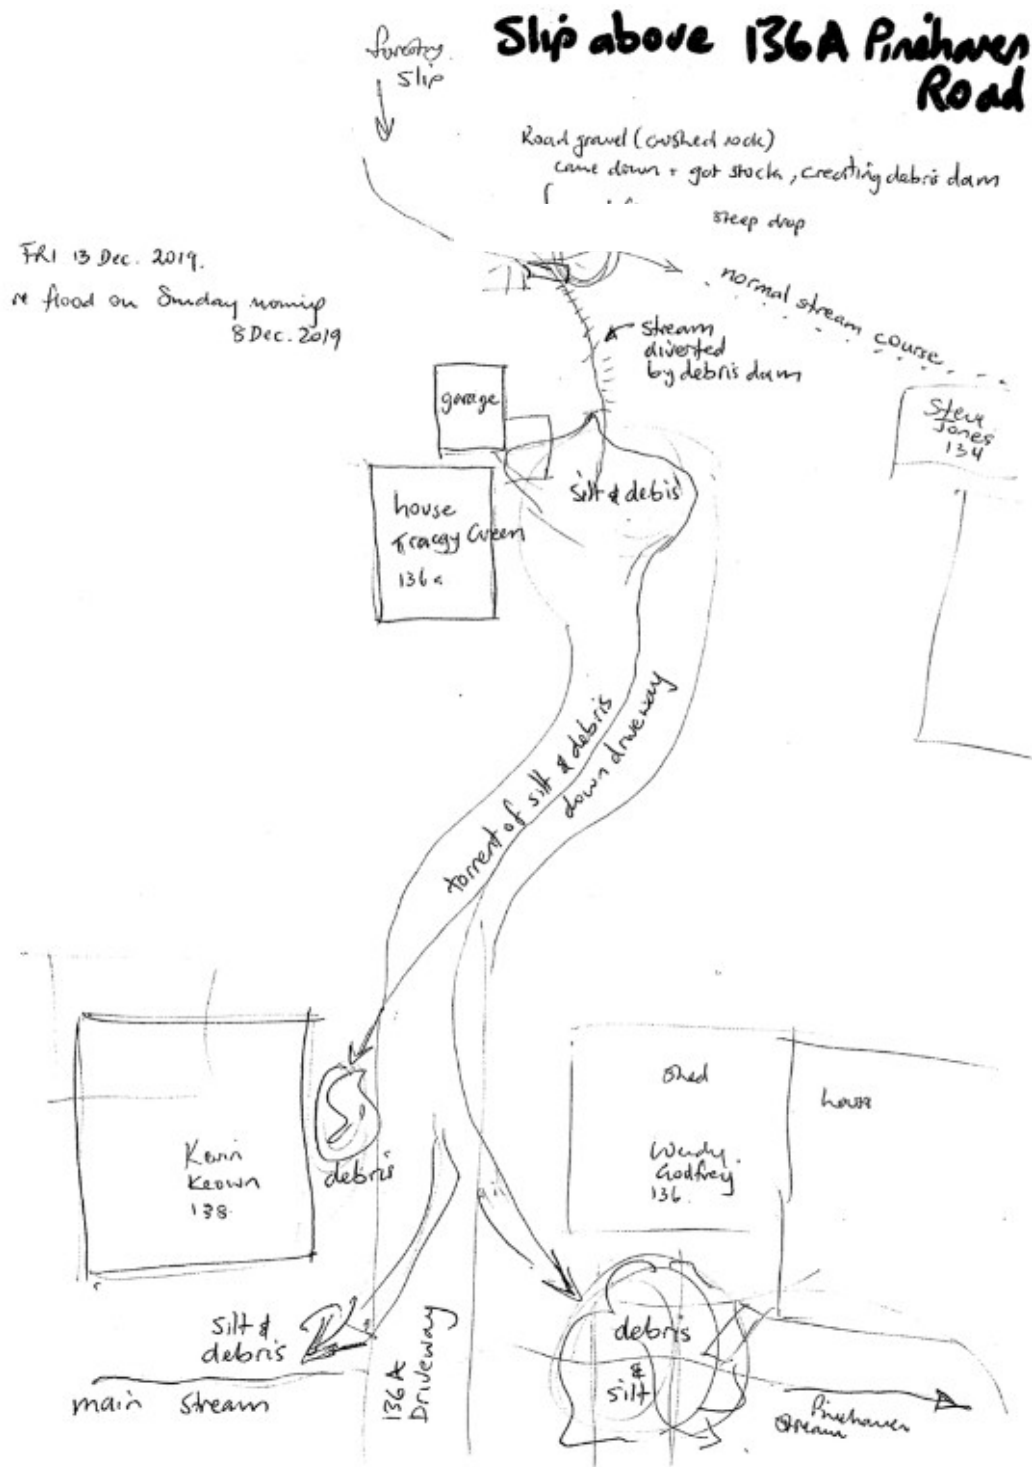 Slip above 136A Pinehaven
Road
forestry
slip
Road gravel (crushed rock)
came down + got stuck, creating debris dam
steep drop
FRI 13 Dec. 2019.
re flood on Sunday morning
8 Dec. 2019
normal stream course
stream
diverted
by debris dam
garage
Steve
Jones
134
silt & debis
house
Tracey Green
136a
torrent of silt & debris
down driveway
Shed
house
Kevin
Keown
138
debris
Wendy
Godfrey
136
silt &
debris
136A
Driveway
debris
&
silt
main stream
Pinehaven
Stream